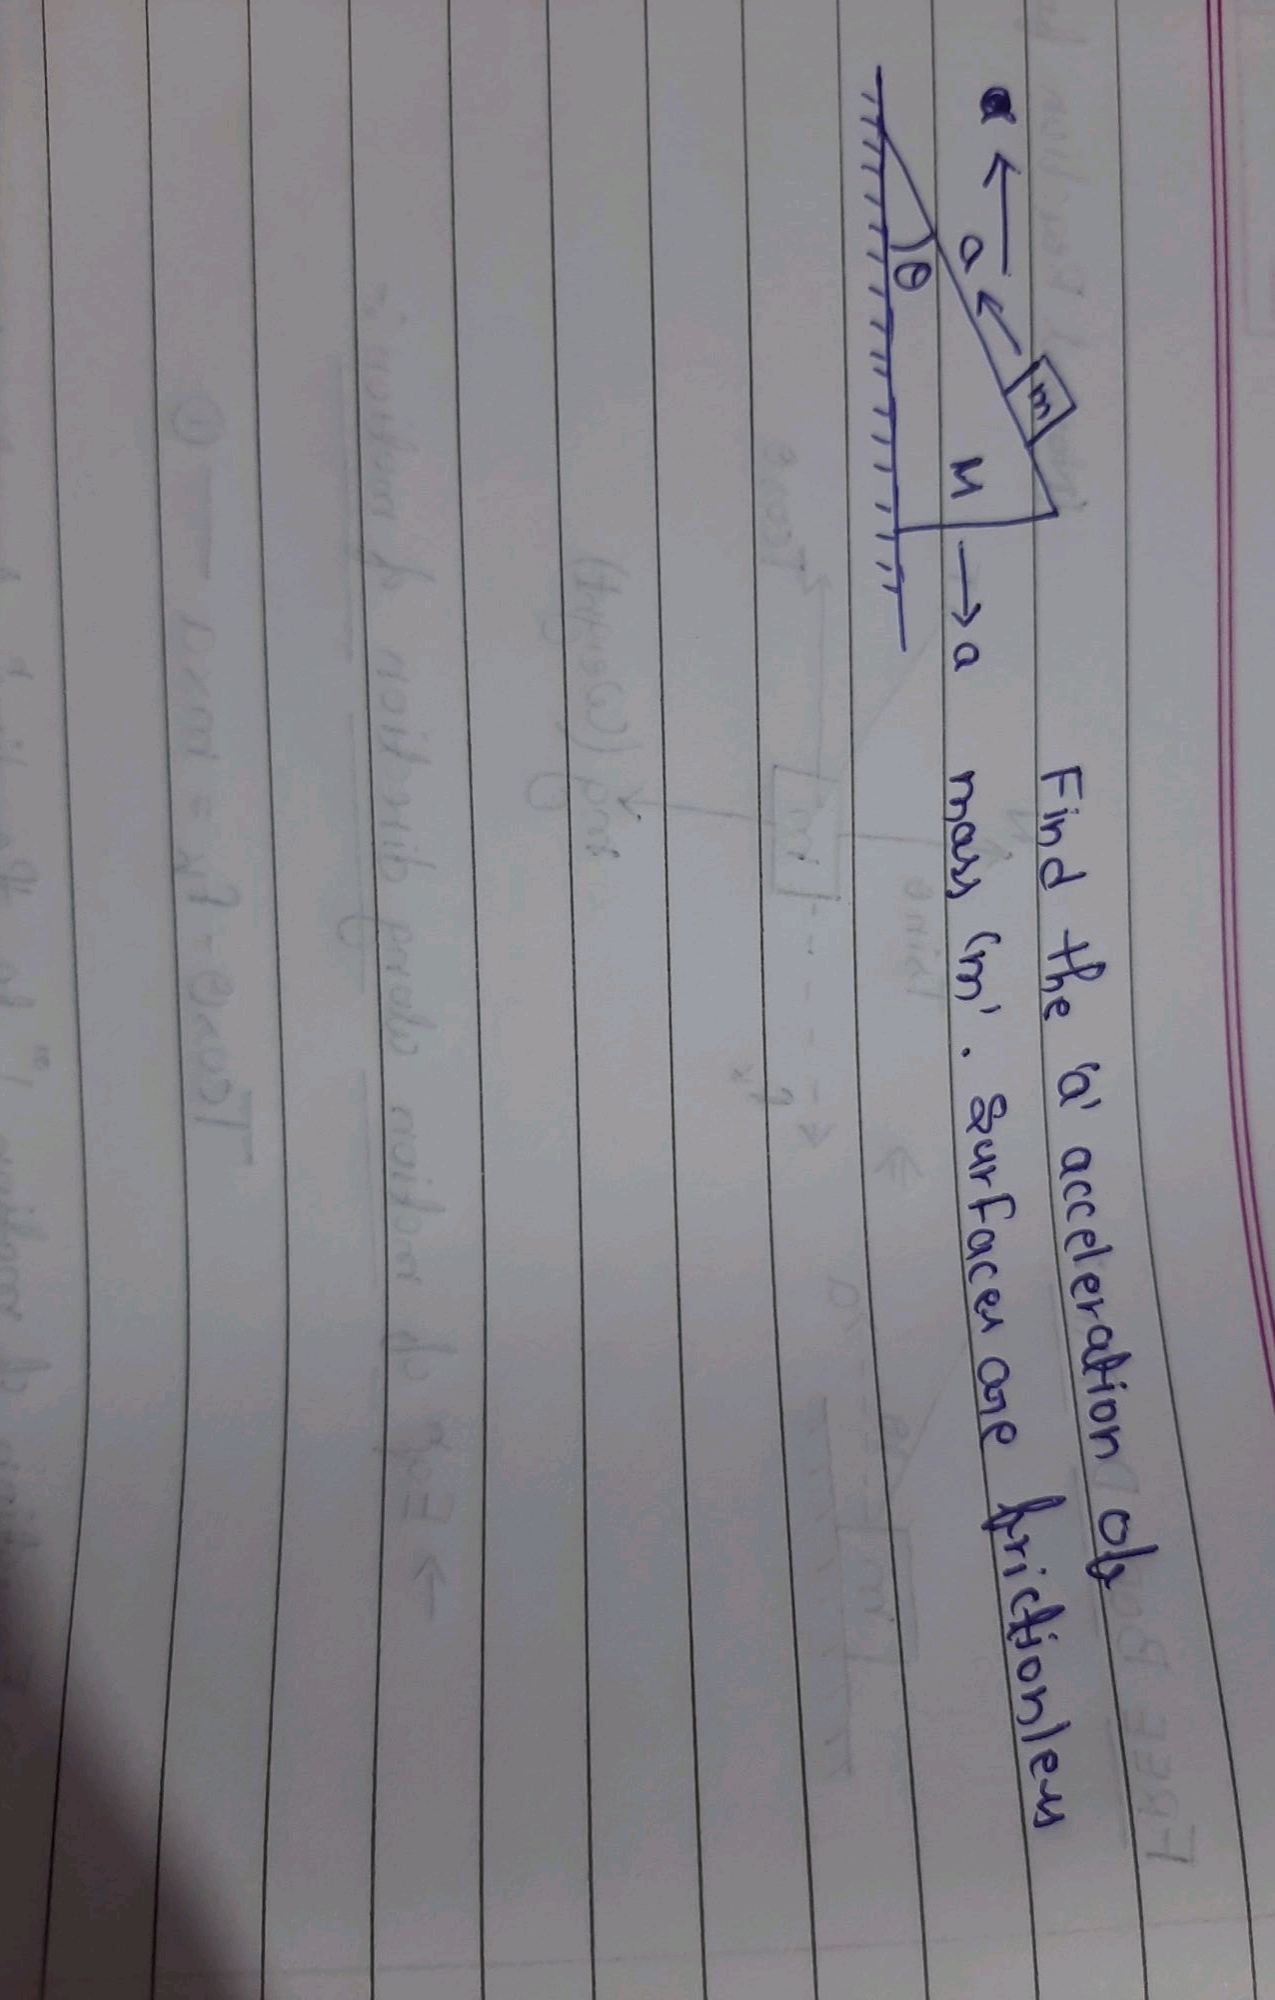 Find the 'a' acceleration of
mass 'm'. Surfaces are frictionless
a
m
M
→ a
θ